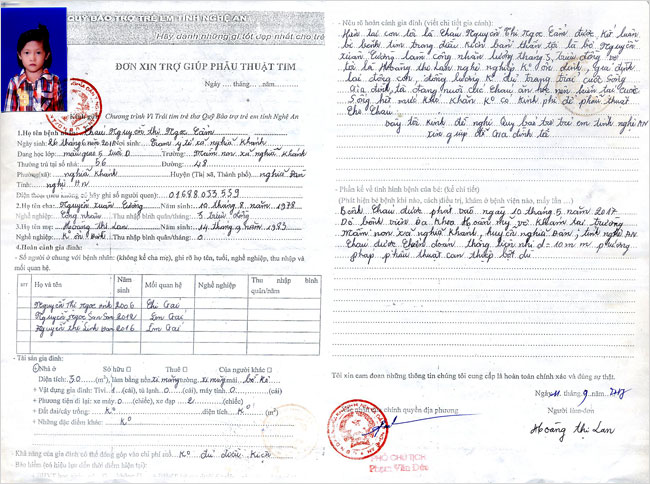 QUỸ BẢO TRỢ TRẺ EM TỈNH NGHỆ AN
Hãy dành những gì tốt đẹp nhất cho trẻ
ĐƠN XIN TRỢ GIÚP PHẪU THUẬT TIM
Ngày ..... tháng..... năm........
Chương trình Vì Trái tim trẻ thơ Quỹ Bảo trợ trẻ em tỉnh Nghệ An
1.Họ tên bệnh nhi: Châu Nguyễn Thị Ngọc Cẩm
Ngày sinh: 26 tháng 6 năm 2012 Nơi sinh: Trạm y tế xã nghĩa Khánh
Đang học lớp: mẫu giáo 5 tuổi D Trường: Mầm non xã nghĩa Khánh
Thường trú tại số nhà: 56 Đường: 48
Phường(xã): nghĩa Khánh Huyện (Thị xã, Thành phố): nghĩa Đàn
Tỉnh: nghệ An
Điện thoại (nên đăng ký ghi số người quen): 01688.033.539
2.Họ tên cha: Nguyễn Xuân Cường 10 tháng 8 năm 1978
Nghề nghiệp: Công nhân Thu nhập bình quân/tháng: 3 triệu đồng
3.Họ tên mẹ: Hoàng thị Lan 14 tháng 9 năm 1983
Nghề nghiệp: K° ổn định Thu nhập bình quân/tháng: 0
4.Hoàn cảnh gia đình:
- Số người ở chung với bệnh nhi: (không kể cha mẹ), ghi rõ họ tên, tuổi, nghề nghiệp, thu nhập và
mối quan hệ.
STT Họ và tên Năm sinh Mối quan hệ Nghề nghiệp Thu nhập bình quân/năm
Nguyễn Thị Ngọc Anh 2006 Chị Gái
Nguyễn Ngọc San San 2012 Em Gái
Nguyễn thị Linh Đan 2016 Em Gái
- Tài sản gia đình:
Nhà ở Sở hữu □ Thuê □ Của người khác □
Diện tích: 30 (m²), làm bằng nền xi măng tường xi măng mái bờ lô
+ Vật dụng gia đình: Tivi 1 (cái), tủ lạnh, 0 (cái), máy tính 0 (cái)
+ Phương tiện đi lại: xe máy 0 (chiếc), xe đạp 2 (chiếc)
+ Đất đai/cây trồng: K° diện tích K° (m²)
+ Những đặc điểm khác: K°
Khả năng của gia đình có thể đóng góp vào chi phí mổ: K° đủ điều kiện
- Nêu rõ hoàn cảnh gia đình (viết chi tiết gia cảnh):
Hiện tại con tôi là Cháu Nguyễn Thị Ngọc Cẩm được Kết luận
bị bệnh tim trong điều kiện bản thân tôi là bố Nguyễn
Xuân Cường làm công nhân lương tháng 3 triệu đồng vợ
tôi là Hoàng thị Lan nghề nghiệp K° ổn định, Gia đình
lại đông con, đồng lương K° đủ trang trải cuộc sống
Gia đình, tôi đang nuôi các Cháu ăn học nên hiện tại cuộc
Sống hết mức khó khăn K° có Kinh phí để phẫu thuật
cho Cháu.
Vậy tôi Kính đề nghị Quỹ bảo trợ trẻ em tỉnh nghệ AN
xin giúp đỡ Gia đình tôi
- Phần kể về tình hình bệnh của bé: (kể chi tiết)
(Phát hiện bị bệnh khi nào, cách điều trị, khám ở bệnh viện nào, mấy lần ...)
Bệnh Cháu được phát vào ngày 10 tháng 5 năm 2017
Do bệnh viện đa Khoa Hoàng mỹ về Khám tại trường
mầm non xã nghĩa Khánh, huyện nghĩa Đàn, tỉnh nghệ AN
Cháu được Chẩn đoán thông liên nhĩ d= 10 mm phương
pháp phẫu thuật can thiệp bít dù
Tôi xin cam đoan những thông tin chúng tôi cung cấp là hoàn toàn chính xác và đúng sự thật.
Ngày 11 tháng 9 năm 2017
Xác nhận của chính quyền địa phương Người làm đơn
Hoàng Thị Lan
PHÓ CHỦ TỊCH